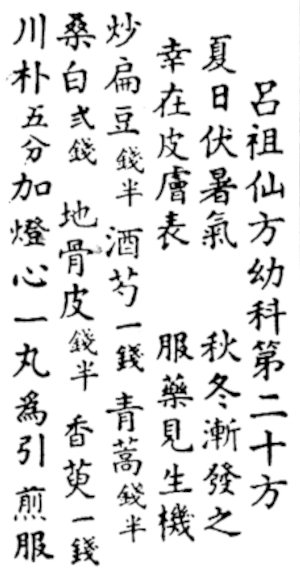 呂祖仙方幼科第二十方
夏日伏暑氣 秋冬漸發之
幸在皮膚表 服藥見生機
炒扁豆錢半 酒芍一錢 青蒿錢半
桑白弍錢 地骨皮錢半 香茰一錢
川朴五分加燈心一丸為引煎服